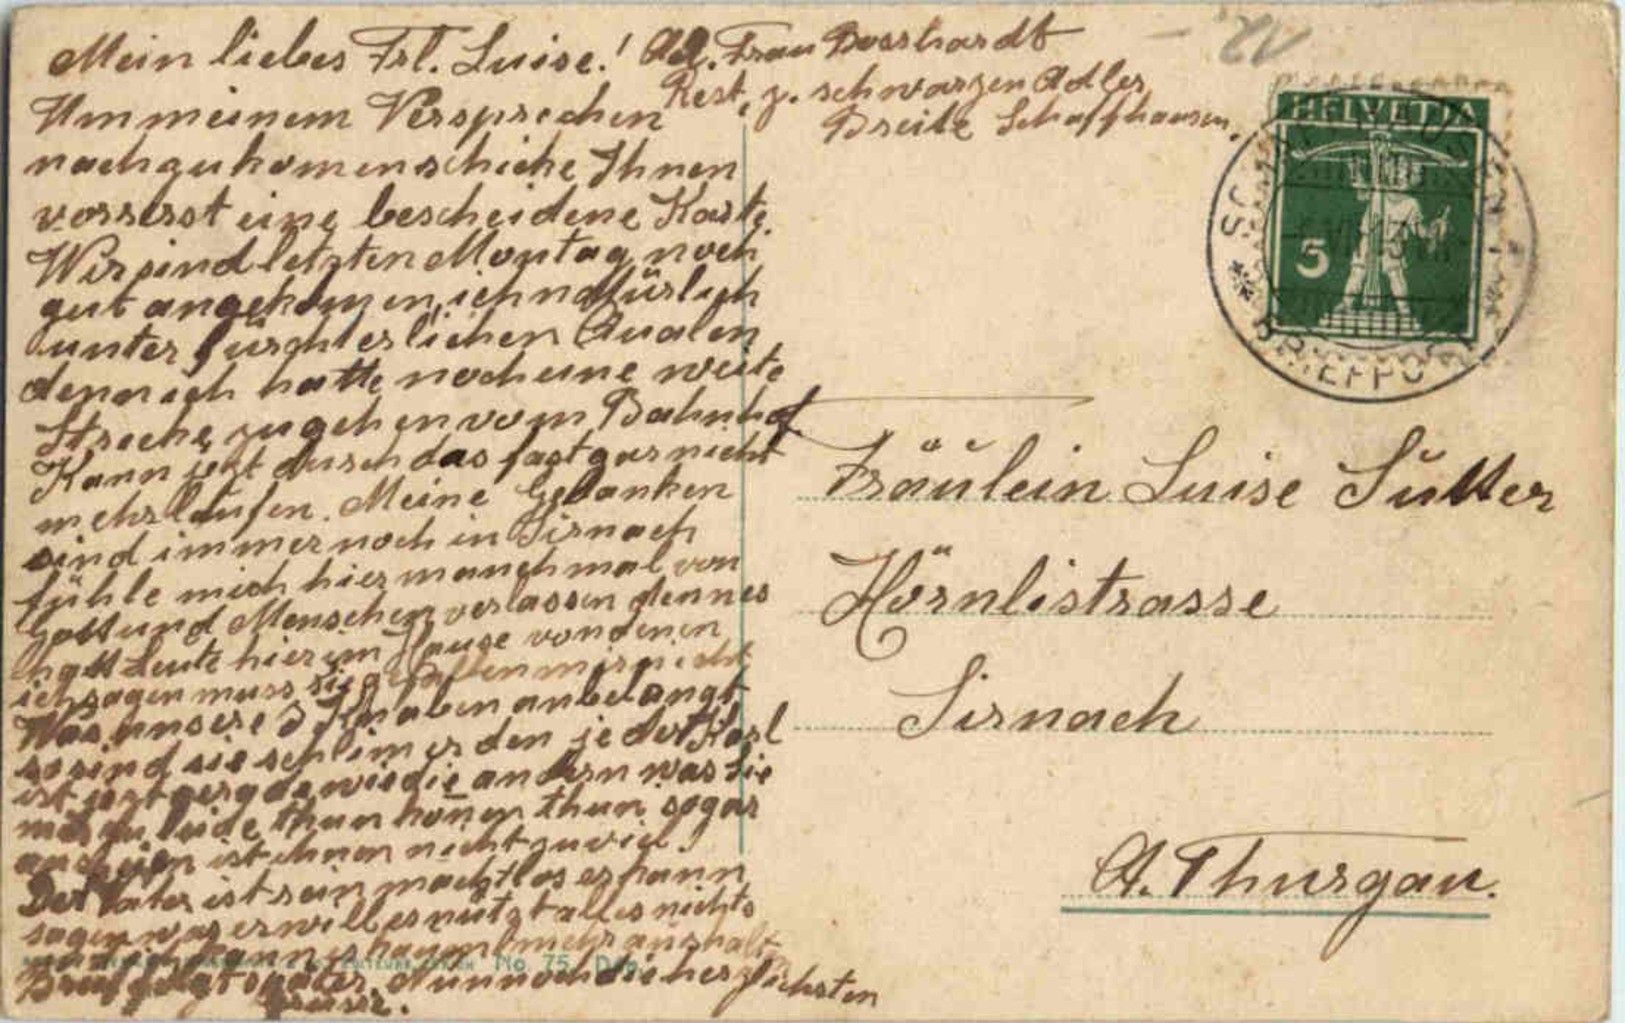 Mein liebes Frl. Luise!
Um meinem Versprechen
nachzukomen schicke Ihnen
vorerst eine bescheidene Karte.
Wir sind letzten Montag noch
gut angekomen, ich natürlich
unter fürchterlichen Qualen
denn ich hatte noch eine weite
Strecke zu gehen vom Bahnhof
Kann jetzt durch das fast gar nicht
mehr laufen. Meine Gedanken
sind immer noch in Sirnach
fühle mich hier manchmal von
Gott und Menschen verlassen denn es
hatt Leute hier im Hause von denen
ich sagen muss sie gefallen mir nicht
Was unsere 3 Knaben anbelangt
so sind sie schlimer den je der Karl
ist jetzt gerade wie die andern was Sie
mir zu leide thun könen thun sogar
ist ihnen nicht zuviel.
Der Vater ist sein machtlos er kann
sagen was er will es nützt alles nichts
kann es kaum mehr aushalt
Brief folgt später. Nun noch die herzlichsten
Grüsse.
Ad. Frau Bosshardt
Rest. z. schwarzen Adler
Breite Schaffhausen.
HELVETIA
5
BRIEFPOST
Fräulein Luise Sutter
Hörnlistrasse
Sirnach
Ct. Thurgau.
No 75